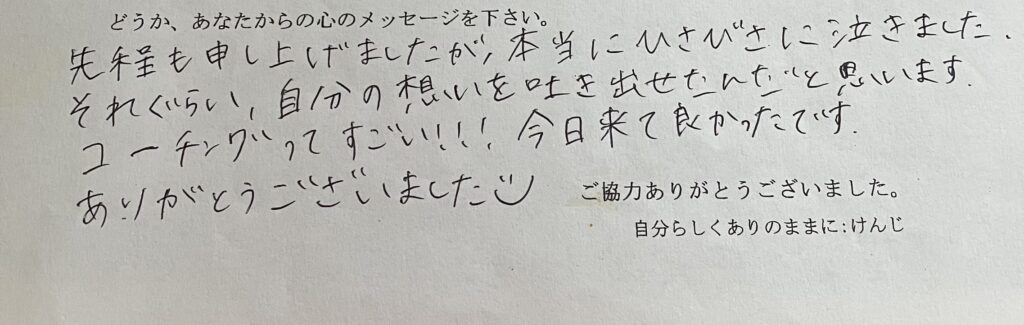 どうか、あなたからの心のメッセージを下さい。
先程も申し上げましたが、本当にひさびさに泣きました.
それぐらい、自分の想いを吐き出せたんだと思います.
コーチングってすごい!!! 今日来て良かったです.
ありがとうございました
ご協力ありがとうございました。
自分らしくありのままに:けんじ